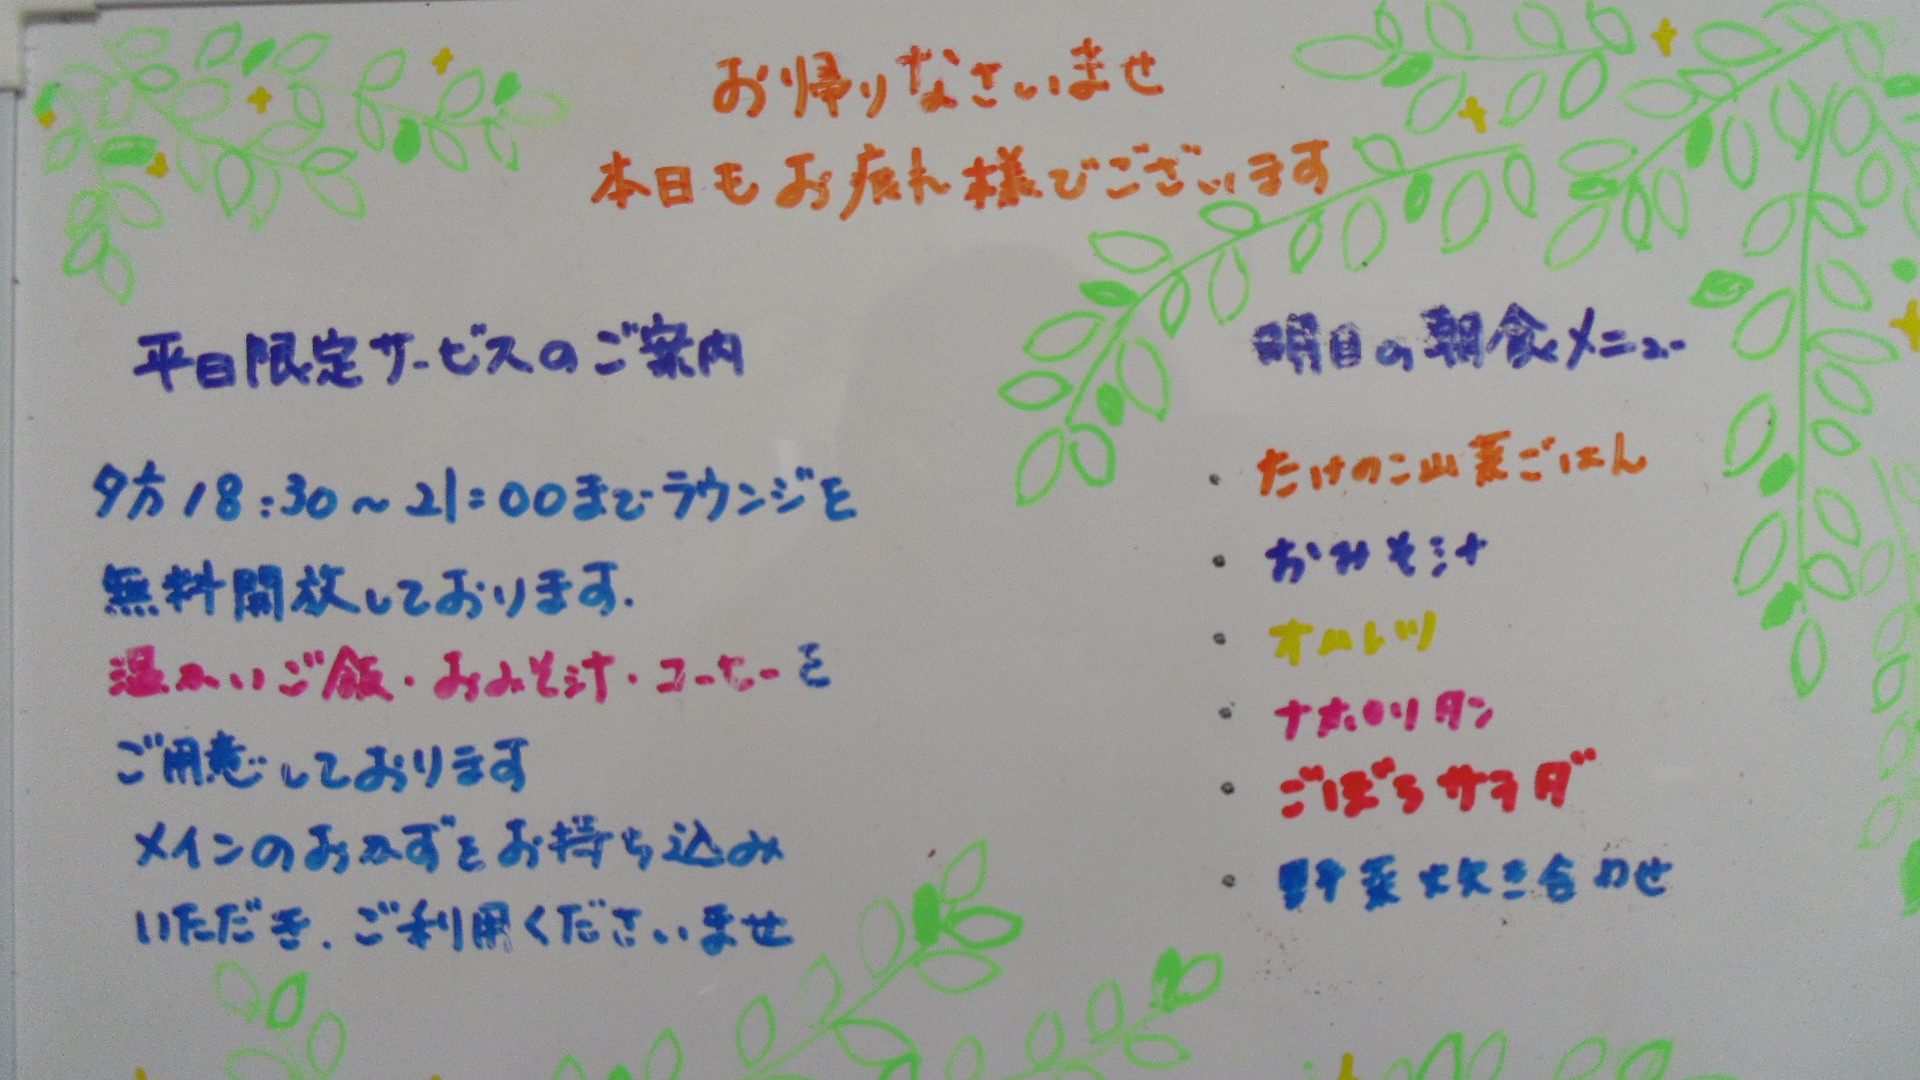 お帰りなさいませ
本日もお疲れ様でございます
平日限定サービスのご案内
夕方18:30～21:00までラウンジを
無料開放しております.
温かいご飯・おみそ汁・コーヒーを
ご用意しております
メインのおかずをお持ち込み
いただき、ご利用くださいませ
明日の朝食メニュー
・たけのこ山菜ごはん
・おみそ汁
・オムレツ
・ナポリタン
・ごぼうサラダ
・野菜炊き合わせ